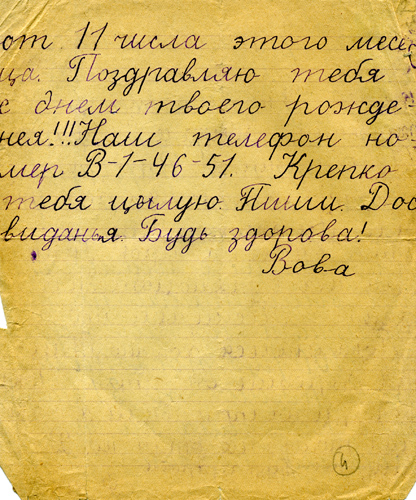 от 11 числа этого месе-
ца. Поздравляю тебя
к днем твоего рожде-
нея!!! Наш телефон но-
мер В-1-46-51. Крепко
тебя цылую. Пиши. Дос
виданья. Будь здорова!
Вова
4